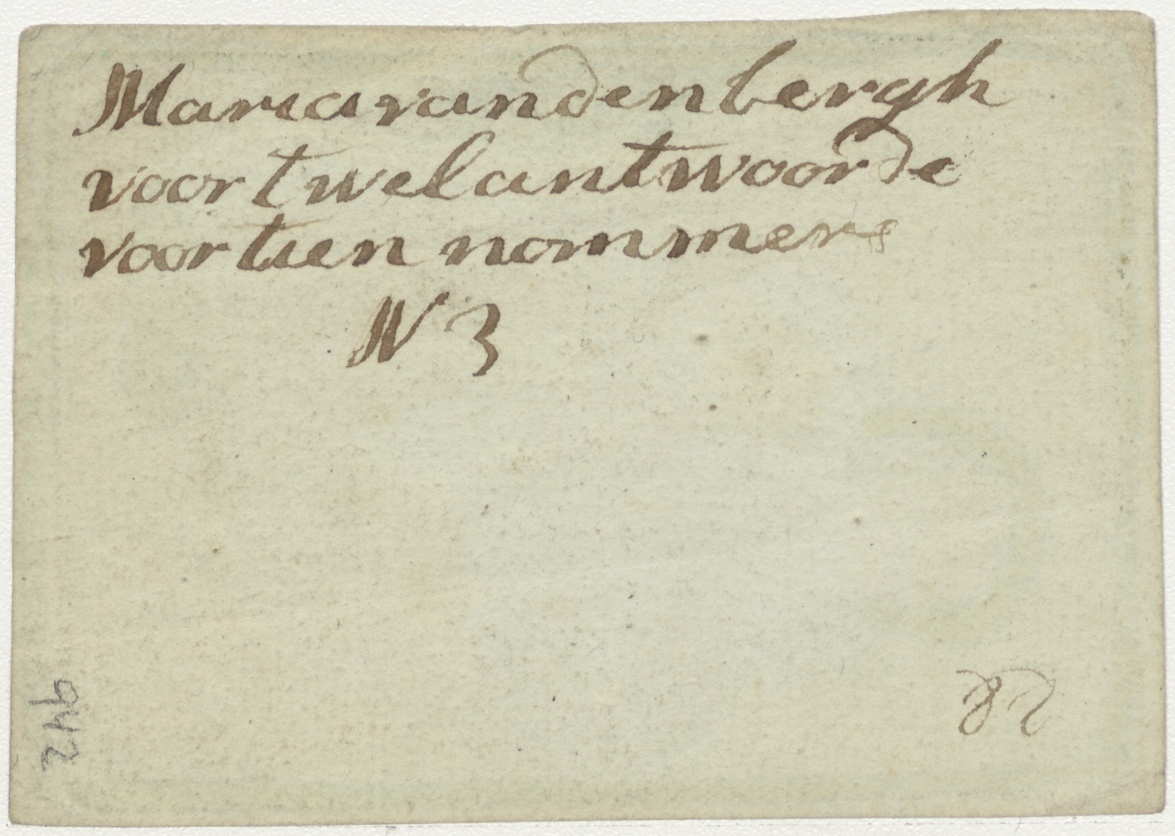 Maria vandenbergh
voort welantwoorde
voor tien nommers
N 3
942